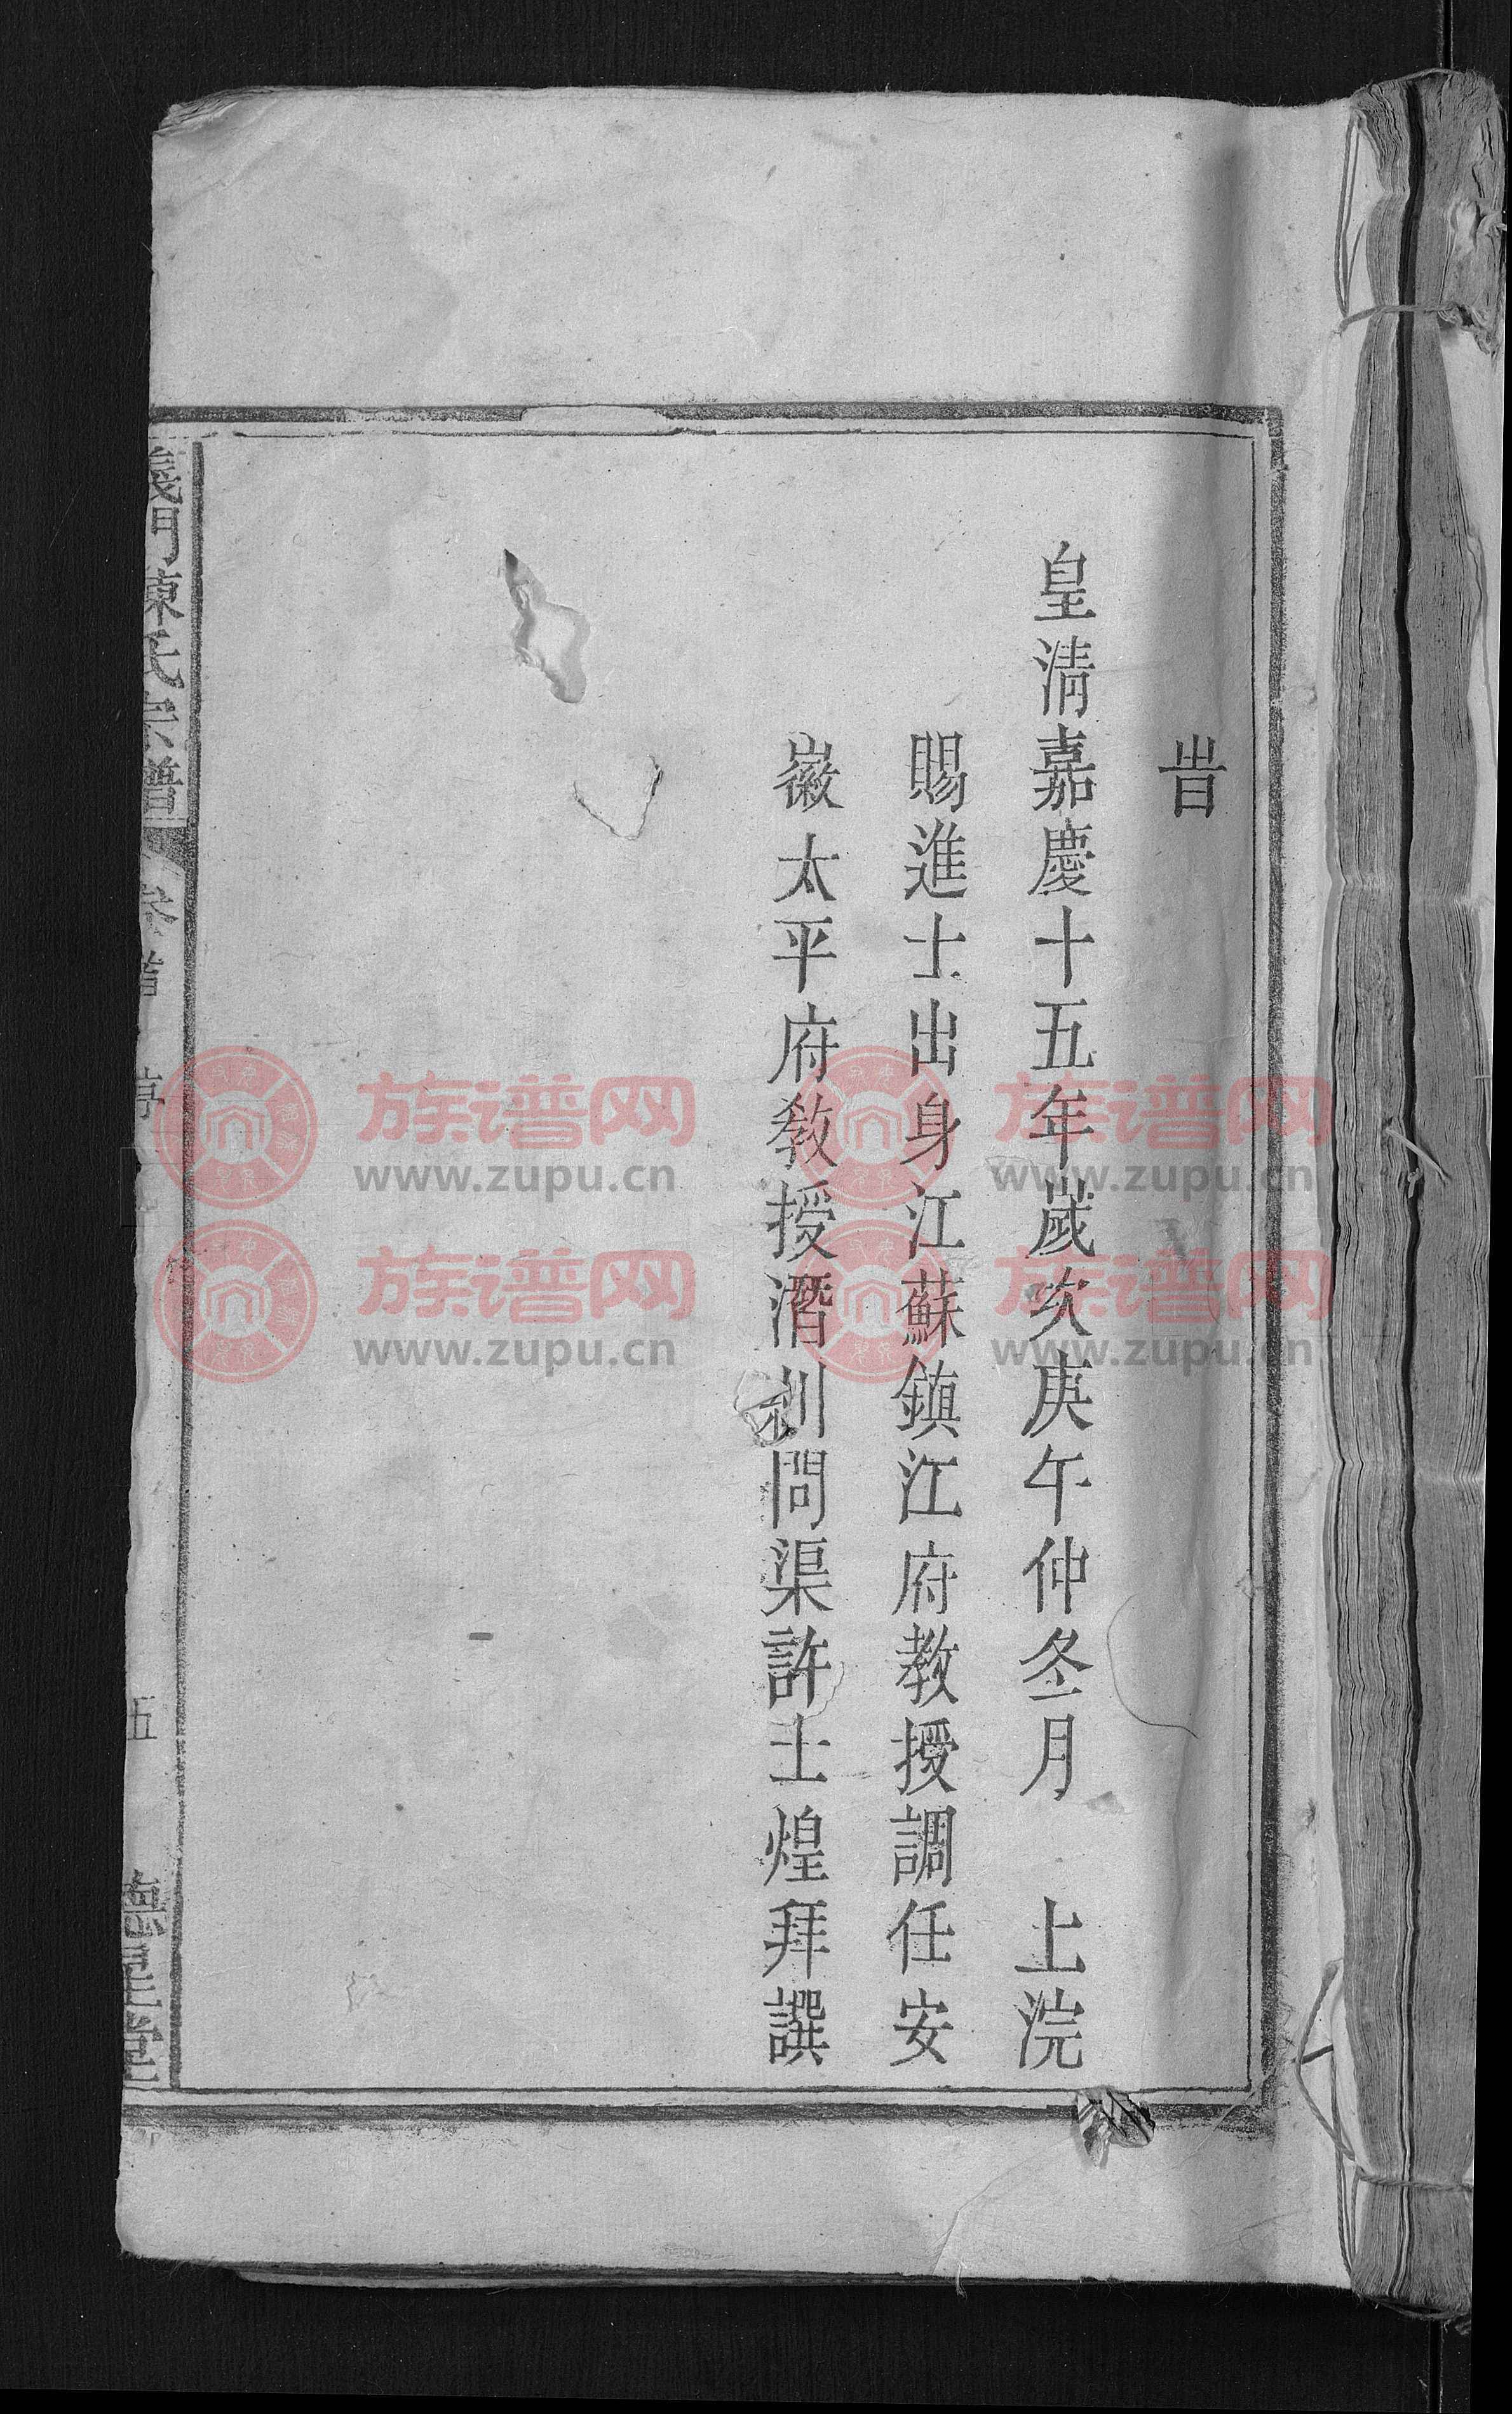 旹
皇清嘉慶十五年歲次庚午仲冬月 上浣
賜進士出身江蘇鎮江府教授調任安
徽太平府教授潛川問渠許士煌拜譔
義門陳氏宗譜 卷首 序 五
族谱网
www.zupu.cn
族谱网
www.zupu.cn
族谱网
www.zupu.cn
族谱网
www.zupu.cn